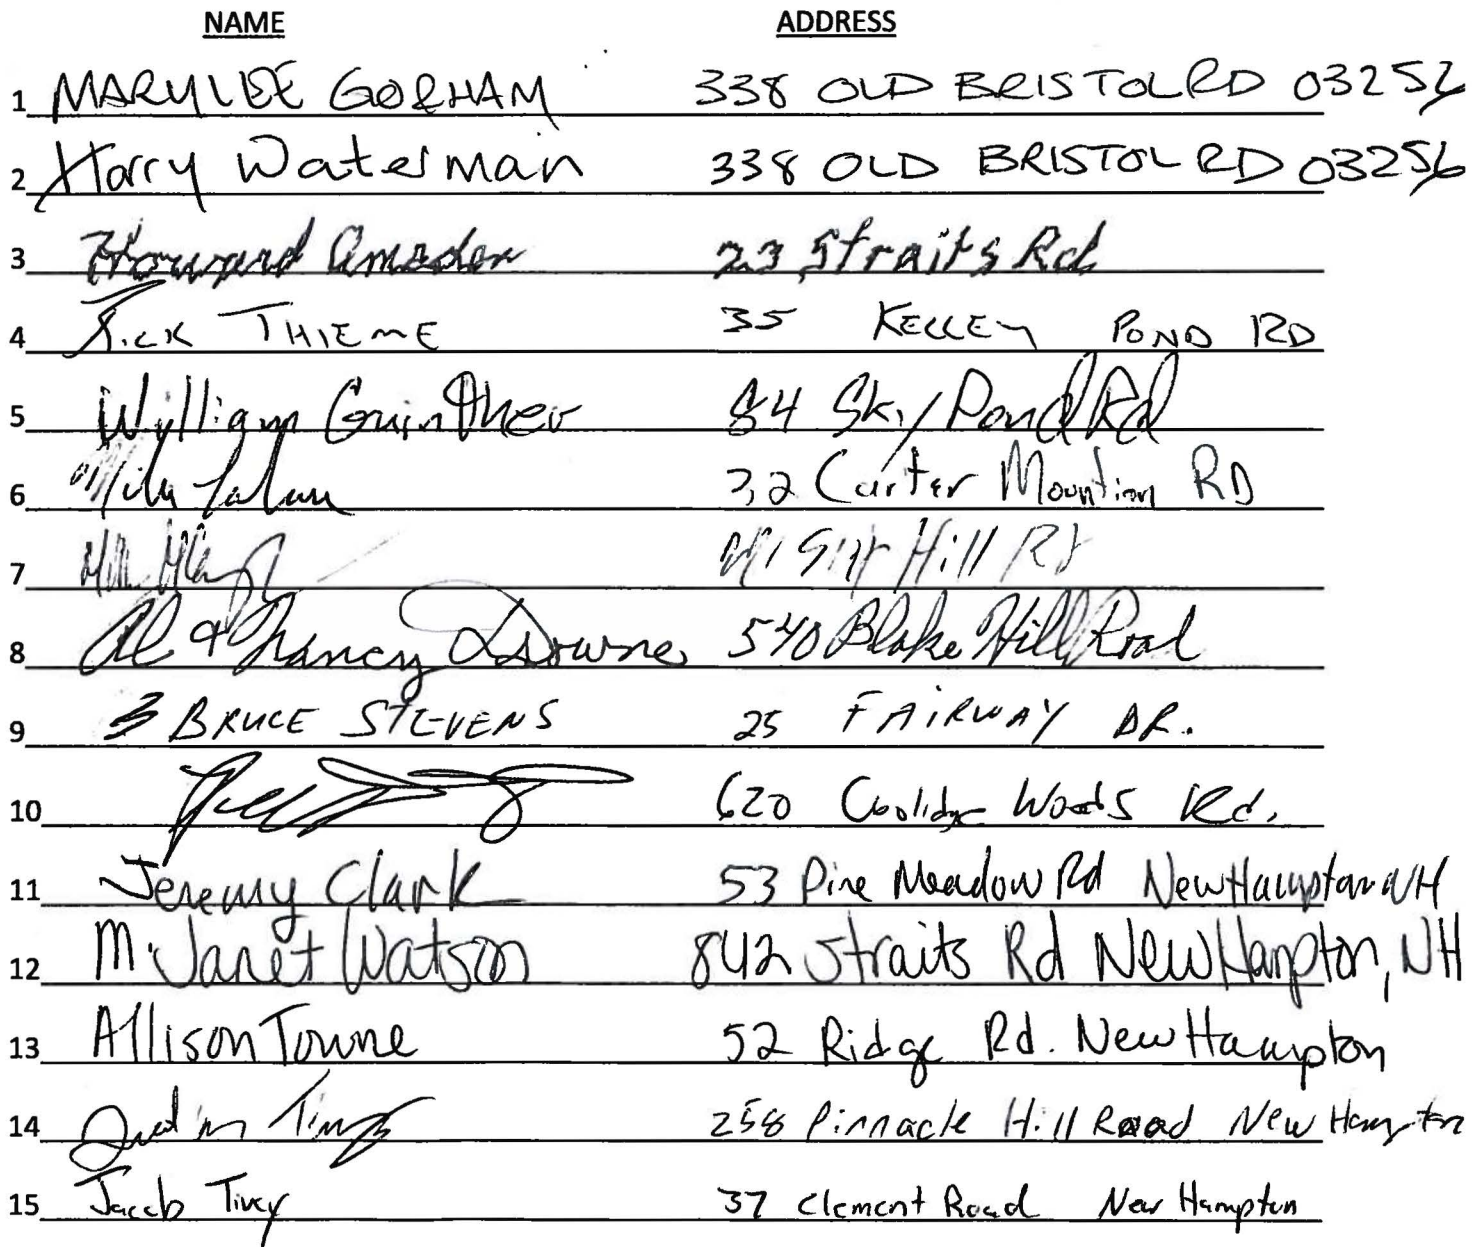 NAME ADDRESS
1 MARYLEE GORHAM 338 OLD BRISTOL RD 03256
2 Harry Waterman 338 OLD BRISTOL RD 03256
3 Howard Amsden 23 Straits Rd
4 Rick THIEME 35 KELLEY POND RD
5 William Guinther 84 Sky Pond Rd
6 32 Carter Mountion RD
7 Hill Rd
8 Al & Nancy 540 Blake Hill Road
9 BRUCE STEVENS 25 FAIRWAY DR.
10 620 Coolidge Woods Rd.
11 Jeremy Clark 53 Pine Meadow Rd New Hampton NH
12 M. Janet Watson 842 Straits Rd New Hampton, NH
13 Allison Towne 52 Ridge Rd. New Hampton
14 258 Pinnacle Hill Road New Hampton
15 Jacob 37 Clement Road New Hampton